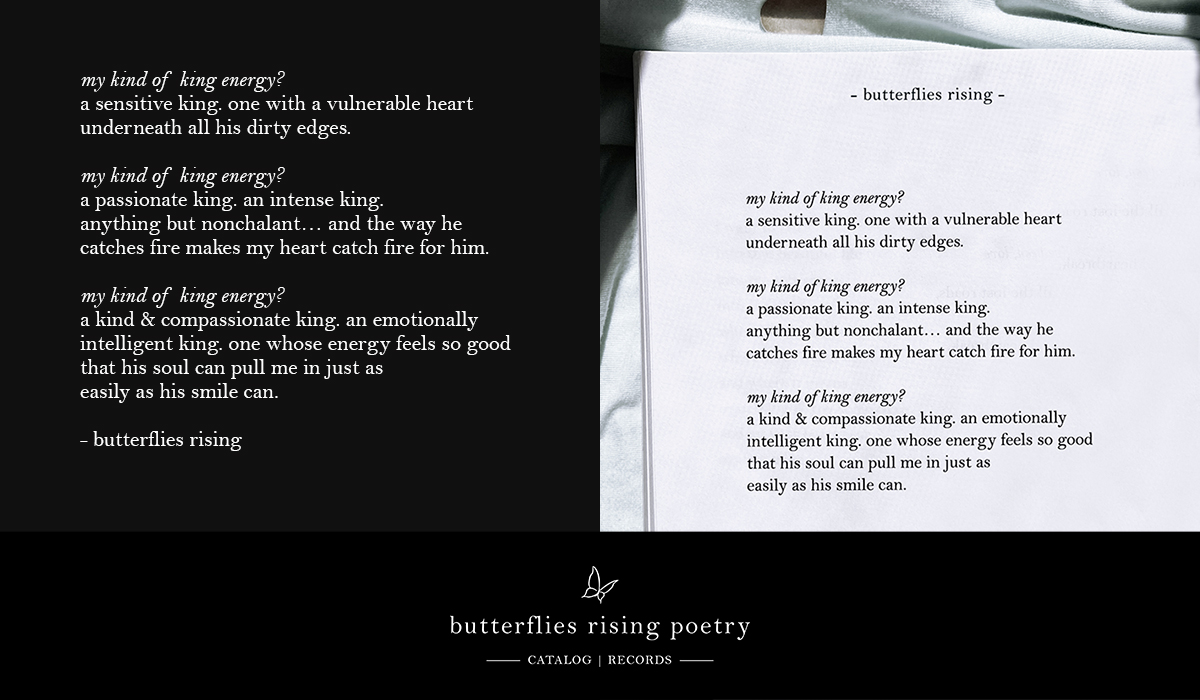 my kind of king energy?
a sensitive king. one with a vulnerable heart
underneath all his dirty edges.
my kind of king energy?
a passionate king. an intense king.
anything but nonchalant… and the way he
catches fire makes my heart catch fire for him.
my kind of king energy?
a kind & compassionate king. an emotionally
intelligent king. one whose energy feels so good
that his soul can pull me in just as
easily as his smile can.
– butterflies rising
- butterflies rising -
my kind of king energy?
a sensitive king. one with a vulnerable heart
underneath all his dirty edges.
my kind of king energy?
a passionate king. an intense king.
anything but nonchalant… and the way he
catches fire makes my heart catch fire for him.
my kind of king energy?
a kind & compassionate king. an emotionally
intelligent king. one whose energy feels so good
that his soul can pull me in just as
easily as his smile can.
butterflies rising poetry
CATALOG | RECORDS